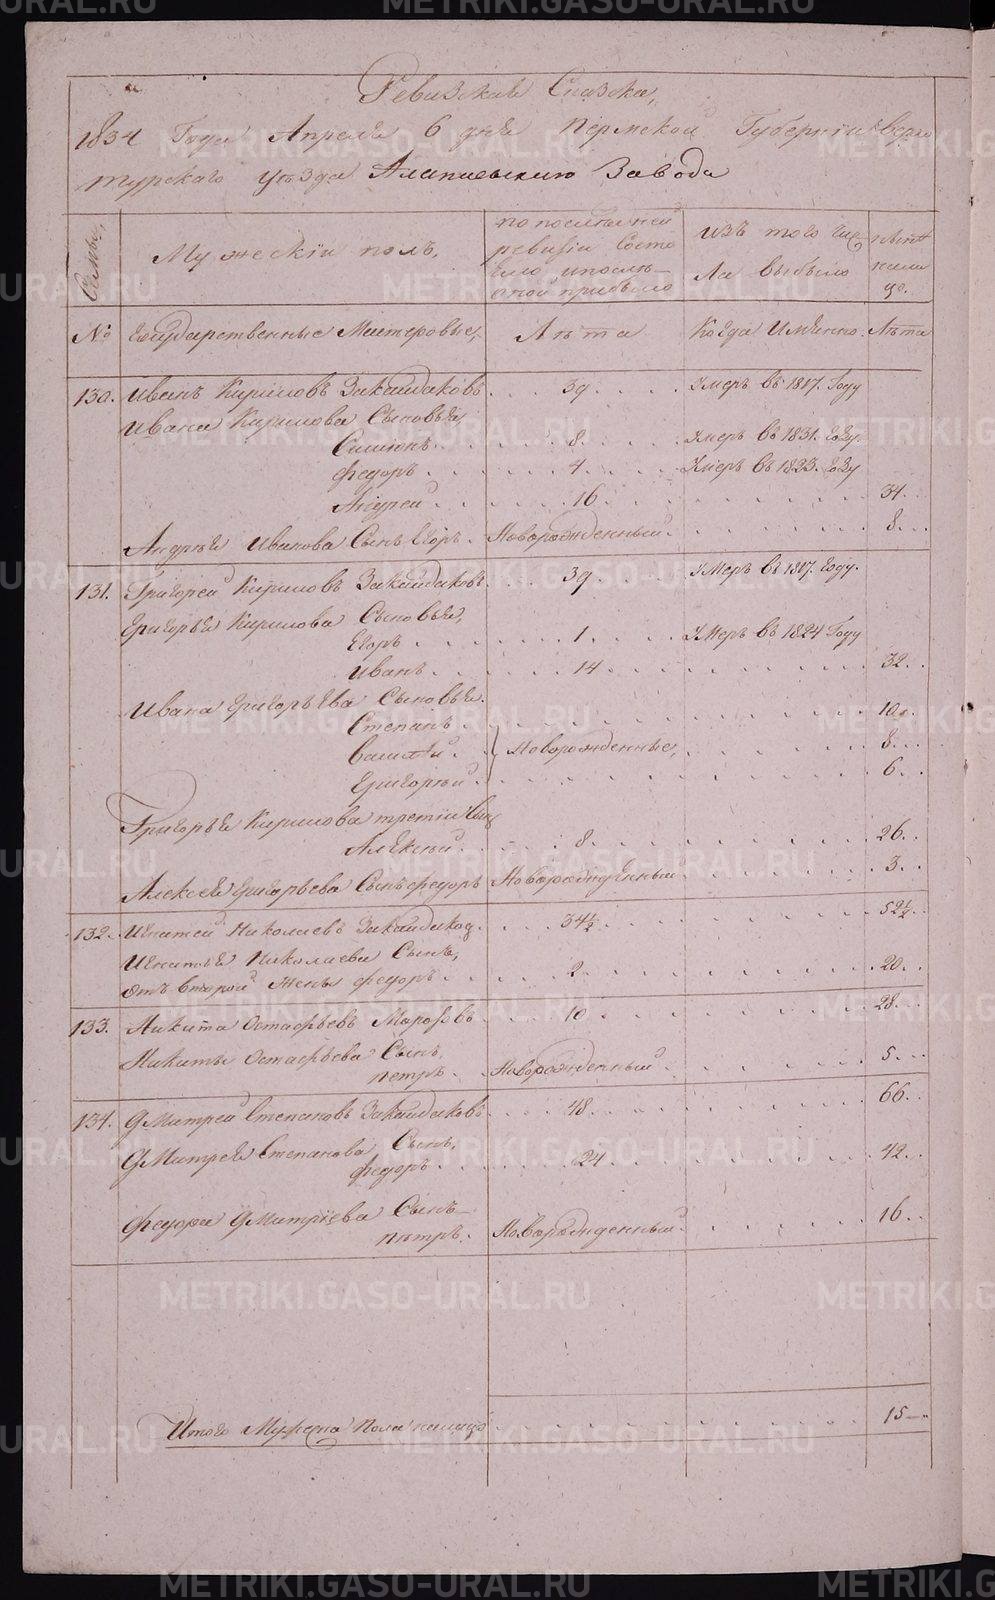 Ревизская Сказка,
1834 Года Апреля 6 дня Пермской Губернии Верхо
турского уѣзда Алапаевскаго Завода
Семьи,
Мужескій полъ,
по последней ревизіи Состояло и после оной прибыло
изъ того числа выбыло
нынѣ на лицо.
№ Государственные Мастеровые, Лѣта Когда Именно. Лѣта
130. Иванъ Кириловъ Закайдаковъ 39 Умеръ въ 1817. Году
Ивана Кирилова Сыновья,
Симіонъ 8. Умеръ въ 1831. Году.
Федоръ 4 Умеръ въ 1823. Году
Андрей 16 34
Андрея Иванова Сынъ Егоръ Новорожденный 8
131. Григорей Кириловъ Закайдаковъ 39 Умеръ въ 1817. Году.
Григорья Кирилова Сыновья,
Егоръ 1 Умеръ въ 1824 Году
Иванъ 14 32
Ивана Григорьева Сыновья
Степанъ 10
Василій Новорожденные, 8
Григорій 6
Григорья Кирилова третій Сынъ
Алексѣй 8 26
Алексея Григорьева Сынъ Федоръ Новорожденный 3
132. Игнатей Николаевъ Закайдаков. 34½ 52½
Игнатья Николаева Сынъ,
отъ второй жены Федоръ 2 20
133. Никита Остафьевъ Морозовъ 10 28
Никиты Остафьева Сынъ
Петръ Новорожденный 5
134. Дмитрей Степановъ Закайдаковъ 48 66
Дмитрея Степанова Сынъ,
Федоръ 24 42
Федора Дмитріева Сынъ
Петръ. Новорожденный 16
Итого Мужеска Пола налицо 15
METRIKI.GASO-URAL.RU